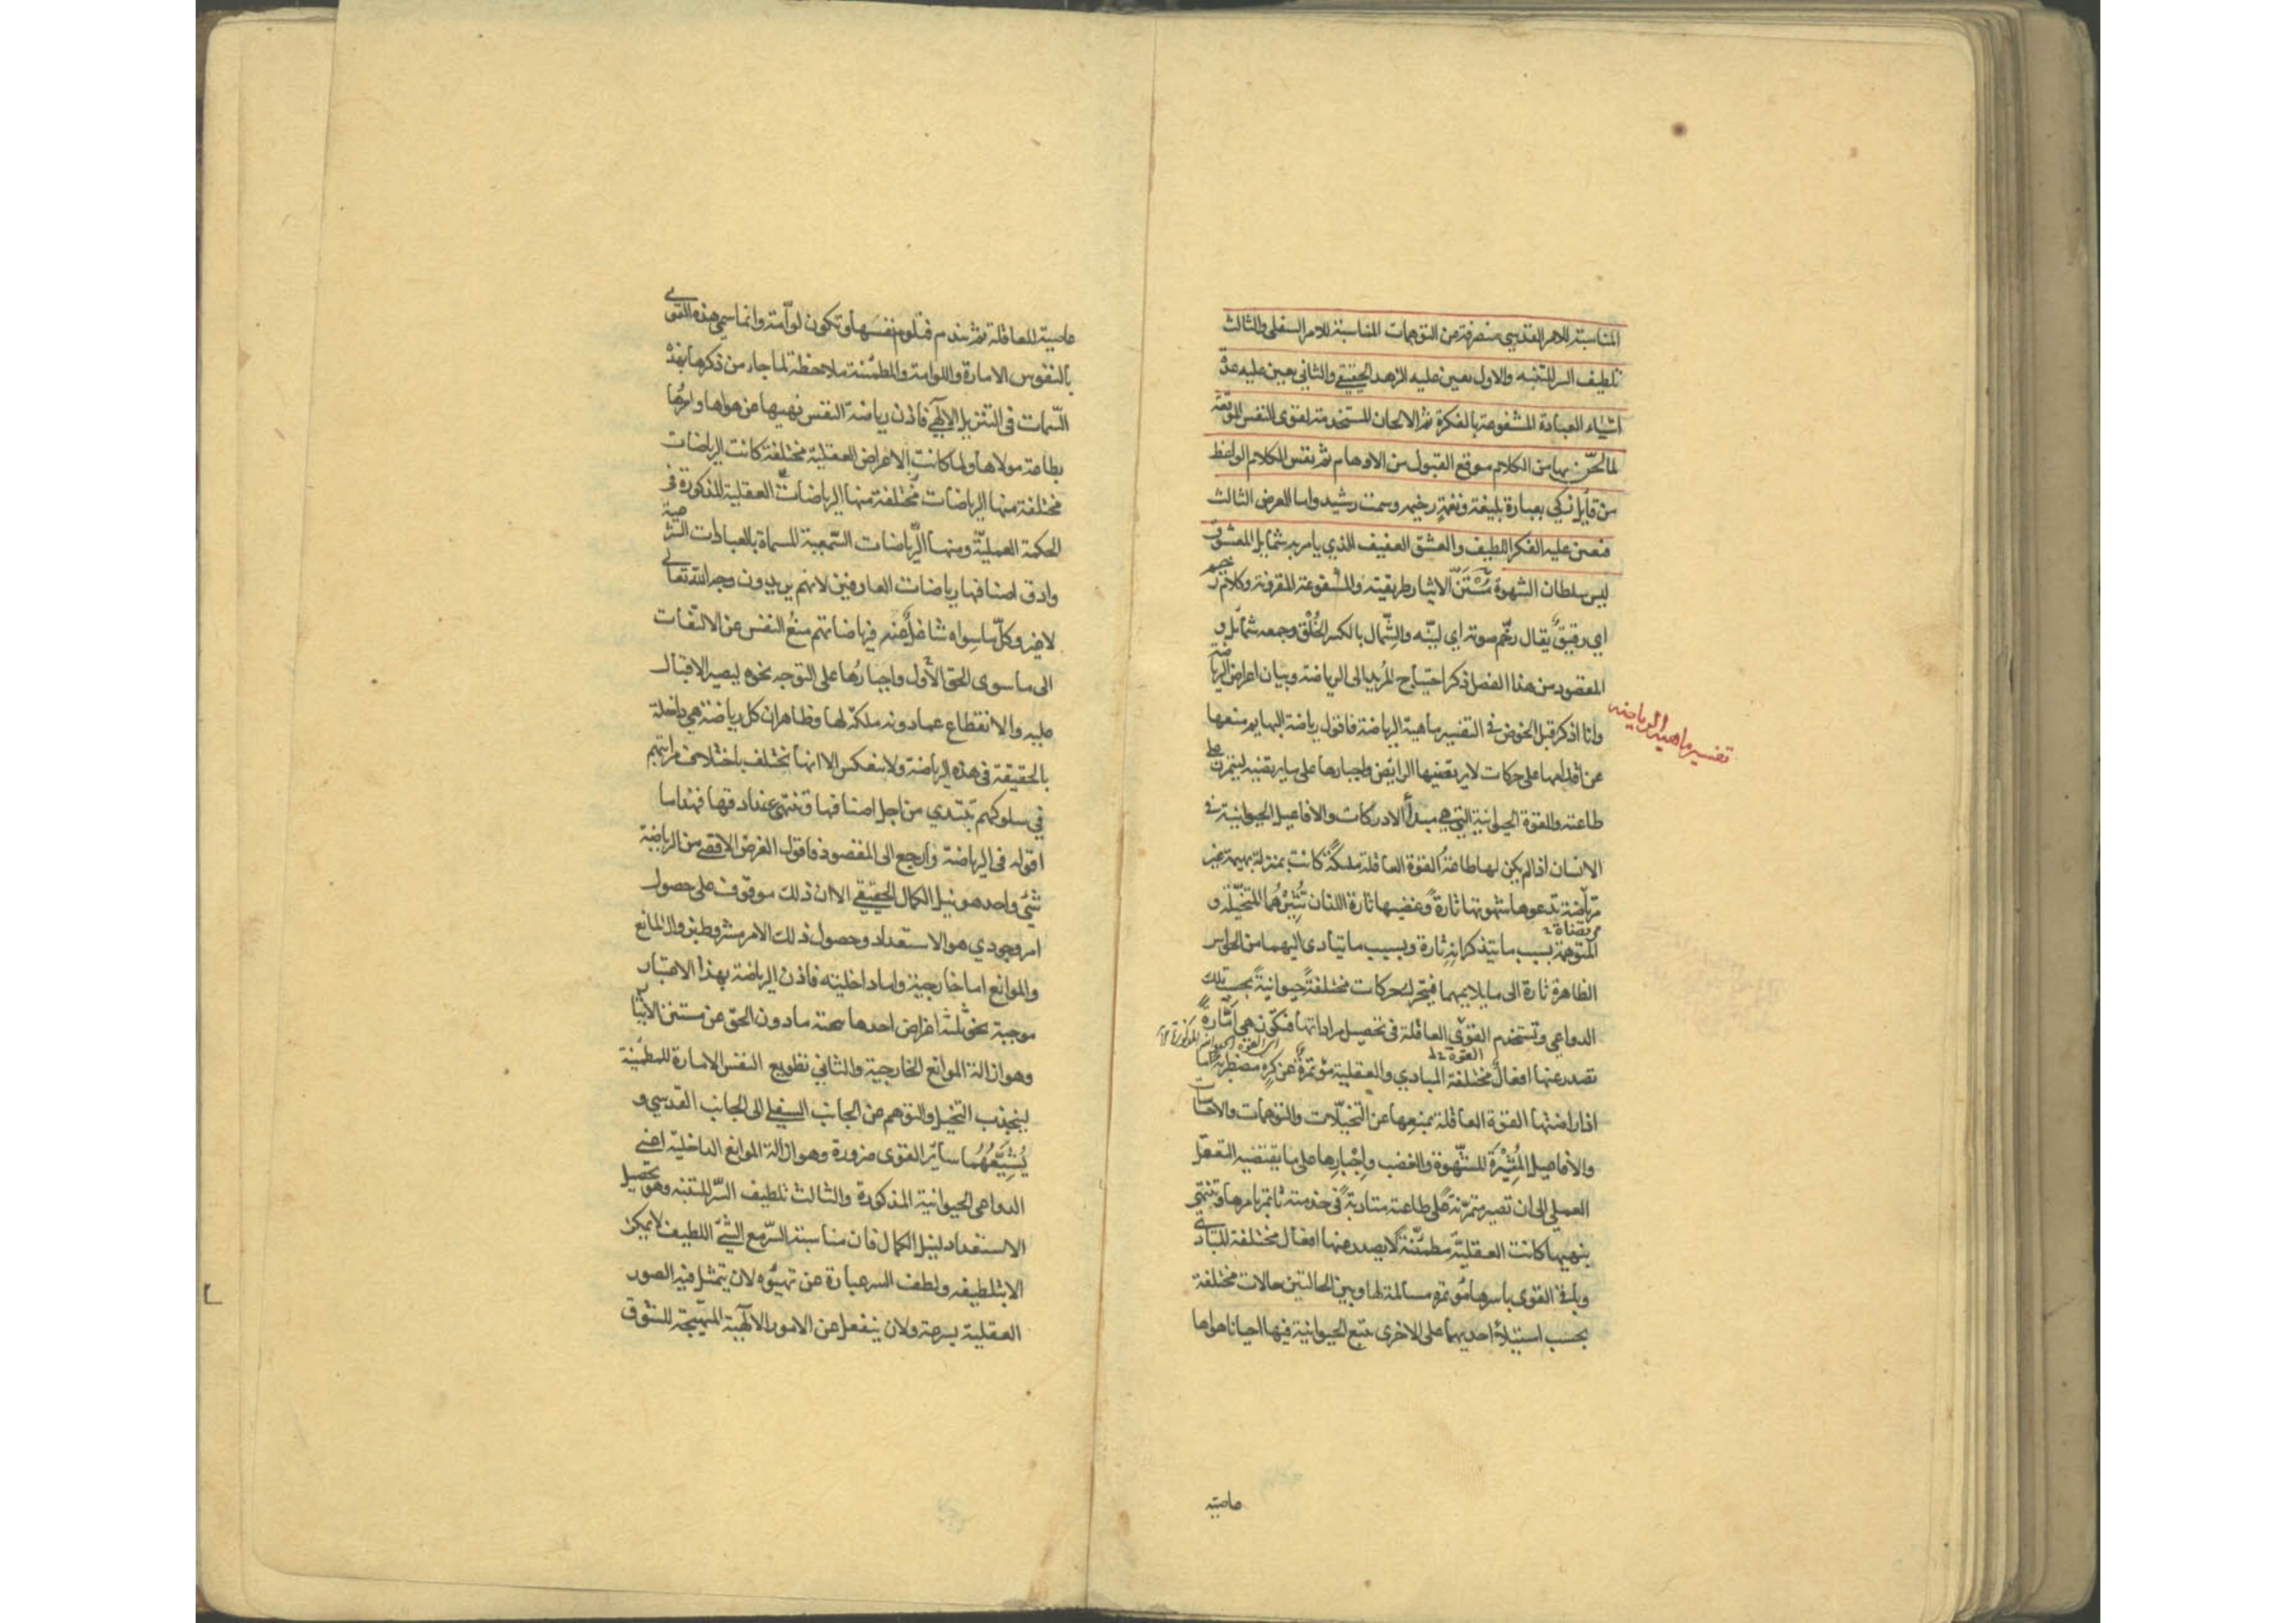 المناسبة للامر القدسي منصرفة من التوهمات المناسبة للامر السفلي والثالث
تلطيف السر للتنبه والاول يعين عليه الزهد الحقيقي والثاني يعين عليه عدة
اشياء العبادة المشفوعة بالفكرة ثم الالحان المستخدمة لقوى النفس الموقعة
لما لحّن بها من الكلام موقع القبول من الاوهام ثم نفس الكلام الواعظ
من قايل زكي بعبارة بليغة ونغمةٍ رخيمه وسمت رشيد واما الغرض الثالث
فيعين عليه الفكر اللطيف والعشق العفيف الذي يامر به شمايل المعشوق
ليس سلطان الشهوة سُنَنُ الايثار طريقته والمشفوعة المقرونة وكلام رخيم
اي رقيقٌ يقال رخّم صوته اي ليّنه والشِّمال بالكسر الخُلق وجمعه شمائل و
المقصود من هذا الفصل ذكر احتياج المُريد الى الرياضة وبيان اغراض الرياضة
وانا اذكر قبل الخوض في التفسير ماهية الرياضة فاقول رياضة البهايم منعها
تفسير ماهية الرياضه
عن اقدامها على حركات لا يرتضيها الرايض واجبارها على ما يرتضيه ليتمرن على
طاعته والقوة الحيوانية التي هي مبدأ الادراكات والافاعيل الحيوانية في
الانسان اذا لم يكن لها طاعة القوة العاقلة ملكةً كانت بمنزلة بهيمة غير
مرتاضة تدعوها شهوتها تارةً وغضبها تارة اللذان تُثيرُهُما المتخيّلة و
المتوهمة بسبب ما يتذكرانه تارة وبسبب ما يتادى اليهما من الحواس
الظاهرة تارة الى ما يلايمهما فيتحرك حركات مختلفةً حيوانيةً بحسب تلك
الدواعي وتستخدم القوى العاقلة في تحصيل مراداتها فتكون هي امّارةً
اي القوة الحيوانية المذكورة
القوة
تصدر عنها افعالٌ مختلفة المبادي والعقلية مؤتمرةً عن كرهٍ مضطربة اما
اذا راضتها القوة العاقلة بمنعها عن التخيّلات والتوهمات والاحساسات
والافاعيل المُثيرَة للشّهوة والغضب وإجبارها على ما يقتضيه التعقل
العملي الى ان تصير متمرّنةً على طاعته متادبةً في خدمته تاتمر بامرها وتنتهي
بنهيها كانت العقليّة مطمئنّةً لا يصدر عنها افعال مختلفة المبادي
وباقي القوى باسرها مؤتمرة مسالمة لها وبين الحالتين حالات مختلفة
بحسب استيلاء احديهما على الاخرى تتبع الحيوانية فيها احيانا هواها
عاصية
عاصية للعاقلة ثم تندم فتلوم نفسَها وتكون لوّامة وانما سمي هذه القوى
بالنفوس الامارة واللوامة والمطمئنة ملاحظة لما جاء من ذكرها بهذه
السّمات في التنزيل الالهي فاذن رياضة النفس نهيها عن هواها وامرُها
بطاعة مولاها ولما كانت الاغراض العقلية مختلفة كانت الرياضات
مختلفة منها الرياضات مختلفة منها الرياضات العقلية المذكورة في
الحكمة العمليّة ومنها الرّياضات السّمعية المسماة بالعبادات الشرعية
وادق اصنافها رياضات العارفين لانهم يريدون وجه الله تعالى
لا غيره وكلّ ما سِواه شاغلٌ عنه فرياضاتهم منعُ النفس عن الالتفات
الى ما سوى الحق الاوّل واجبارُها على التوجه نحوه ليصير الاقبال
عليه والانقطاع عما دونه ملكة لها وظاهر ان كل رياضة هي داخلة
بالحقيقة في هذه الرياضة ولا ينعكس الا انها تختلف باختلاف مراتبهم
في سلوكهم تبتدي من اجل اصنافها وتنتهي عند ادقها فهذا ما
اقوله في الرياضة وارجع الى المقصود فاقول الغرض الاقصى من الرياضة
شيء واحد هو نيل الكمال الحقيقي الا ان ذلك موقوف على حصول
امر وجودي هو الاستعداد وحصول ذلك الامر مشروط بزوال المانع
والموانع اما خارجية واما داخلية فاذن الرياضة بهذا الاعتبار
موجبة نحو ثلثة اغراض احدها تنحية ما دون الحق عن مستنن الايثار
وهو ازالة الموانع الخارجية والثاني تطويع النفس الامارة للمطمئنة
لينجذب التخيل والتوهم عن الجانب السفلي الى الجانب القدسي و
يُشيِّعُهُما سائر القوى ضرورة وهو ازالة الموانع الداخلية اعني
الدواعي الحيوانية المذكورة والثالث تلطيف السّر للتنبه وهو تحصيل
الاستعداد لنيل الكمال فان مناسبة السّر مع الشيء اللطيف لا يمكن
الا بتلطيفه ولطف السر عبارة عن تهيّؤه لان يتمثل فيه الصور
العقلية بسرعة ولان ينفعل عن الامور الالهية المهيّجة للشوق